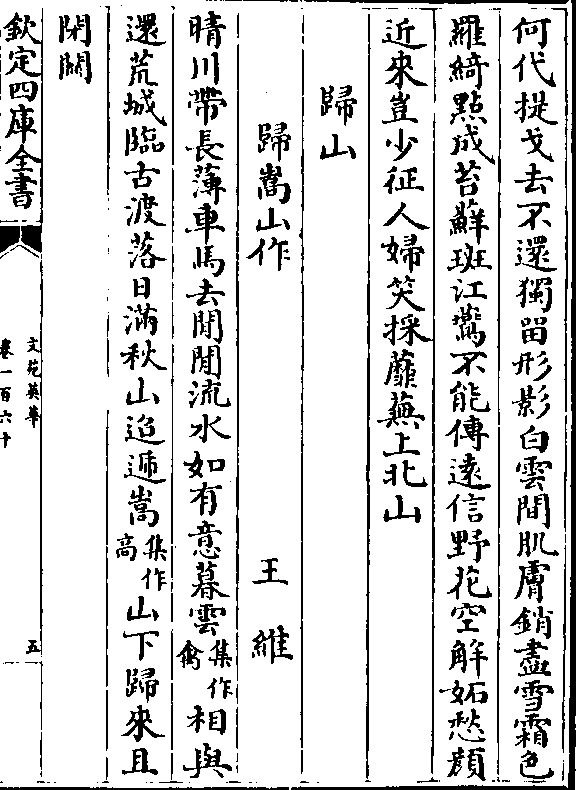 何代提戈去不還獨留形影白雲間肌膚銷盡雪霜色
羅綺㸃成苔蘚斑江鷰不能傳逺信野花空解妬愁顔
近來豈少征人婦笑採蘼蕪上北山
歸山
歸嵩山作 王維
晴川帶長薄車馬去閒閒流水如有意暮雲集作禽相與
還荒城臨古渡落日滿秋山迢遞嵩集作高山下歸來且
閉關
欽定四庫全書
文苑英華
卷一百六十
五